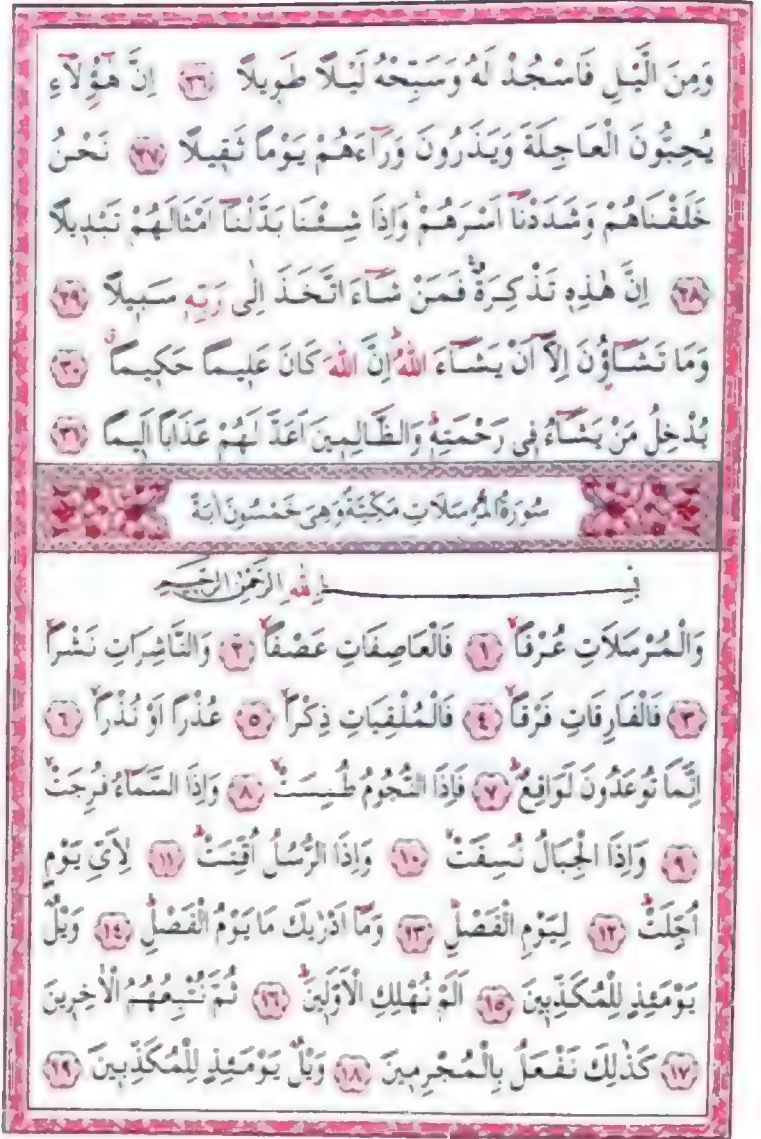 وَمِنَ الَّيْلِ فَاسْجُدْ لَهُ وَسَبِّحْهُ لَيْلًا طَوِيلًا ﴿٢٦﴾ اِنَّ هٰٓؤُلَٓاءِ
يُحِبُّونَ الْعَاجِلَةَ وَيَذَرُونَ وَرَٓاءَهُمْ يَوْمًا ثَقِيلًا ﴿٢٧﴾ نَحْنُ
خَلَقْنَاهُمْ وَشَدَدْنَٓا اَسْرَهُمْ وَاِذَا شِئْنَا بَدَّلْنَٓا اَمْثَالَهُمْ تَبْدِيلًا
﴿٢٨﴾ اِنَّ هٰذِهِ تَذْكِرَةٌ فَمَنْ شَٓاءَ اتَّخَذَ اِلٰى رَبِّهِ سَبِيلًا ﴿٢٩﴾
وَمَا تَشَٓاؤُنَ اِلَّٓا اَنْ يَشَٓاءَ اللّٰهُ اِنَّ اللّٰهَ كَانَ عَلِيمًا حَكِيمًا ﴿٣٠﴾
يُدْخِلُ مَنْ يَشَٓاءُ فِى رَحْمَتِهِ وَالظَّالِمِينَ اَعَدَّ لَهُمْ عَذَابًا اَلِيمًا ﴿٣١﴾
سُورَةُ الْمُرْسَلَاتِ مَكِّيَّةٌ وَهِىَ خَمْسُونَ اٰيَةً
بِسْمِ اللّٰهِ الرَّحْمٰنِ الرَّحِيمِ
وَالْمُرْسَلَاتِ عُرْفًا ﴿١﴾ فَالْعَاصِفَاتِ عَصْفًا ﴿٢﴾ وَالنَّاشِرَاتِ نَشْرًا
﴿٣﴾ فَالْفَارِقَاتِ فَرْقًا ﴿٤﴾ فَالْمُلْقِيَاتِ ذِكْرًا ﴿٥﴾ عُذْرًا اَوْ نُذْرًا ﴿٦﴾
اِنَّمَا تُوعَدُونَ لَوَاقِعٌ ﴿٧﴾ فَاِذَا النُّجُومُ طُمِسَتْ ﴿٨﴾ وَاِذَا السَّمَٓاءُ فُرِجَتْ
﴿٩﴾ وَاِذَا الْجِبَالُ نُسِفَتْ ﴿١٠﴾ وَاِذَا الرُّسُلُ اُقِّتَتْ ﴿١١﴾ لِاَىِّ يَوْمٍ
اُجِّلَتْ ﴿١٢﴾ لِيَوْمِ الْفَصْلِ ﴿١٣﴾ وَمَٓا اَدْرٰيكَ مَا يَوْمُ الْفَصْلِ ﴿١٤﴾ وَيْلٌ
يَوْمَئِذٍ لِلْمُكَذِّبِينَ ﴿١٥﴾ اَلَمْ نُهْلِكِ الْاَوَّلِينَ ﴿١٦﴾ ثُمَّ نُتْبِعُهُمُ الْاٰخِرِينَ
﴿١٧﴾ كَذٰلِكَ نَفْعَلُ بِالْمُجْرِمِينَ ﴿١٨﴾ وَيْلٌ يَوْمَئِذٍ لِلْمُكَذِّبِينَ ﴿١٩﴾